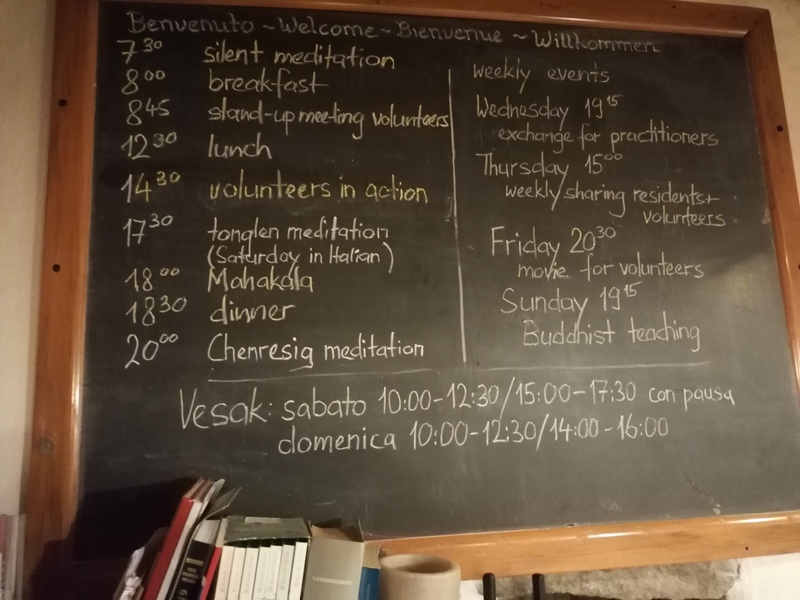 Benvenuto ~ Welcome ~ Bienvenue ~ Willkommen
7³⁰ silent meditation
8⁰⁰ breakfast
8⁴⁵ stand-up meeting volunteers
12³⁰ lunch
14³⁰ volunteers in action
17³⁰ tonglen meditation
(Saturday in Italian)
18⁰⁰ Mahakala
18³⁰ dinner
20⁰⁰ Chenresig meditation
weekly events
Wednesday 19¹⁵
exchange for practitioners
Thursday 15⁰⁰
weekly sharing residents+
volunteers
Friday 20³⁰
movie for volunteers
Sunday 19¹⁵
Buddhist teaching
Vesak: sabato 10:00-12:30/15:00-17:30 con pausa
domenica 10:00-12:30/14:00-16:00